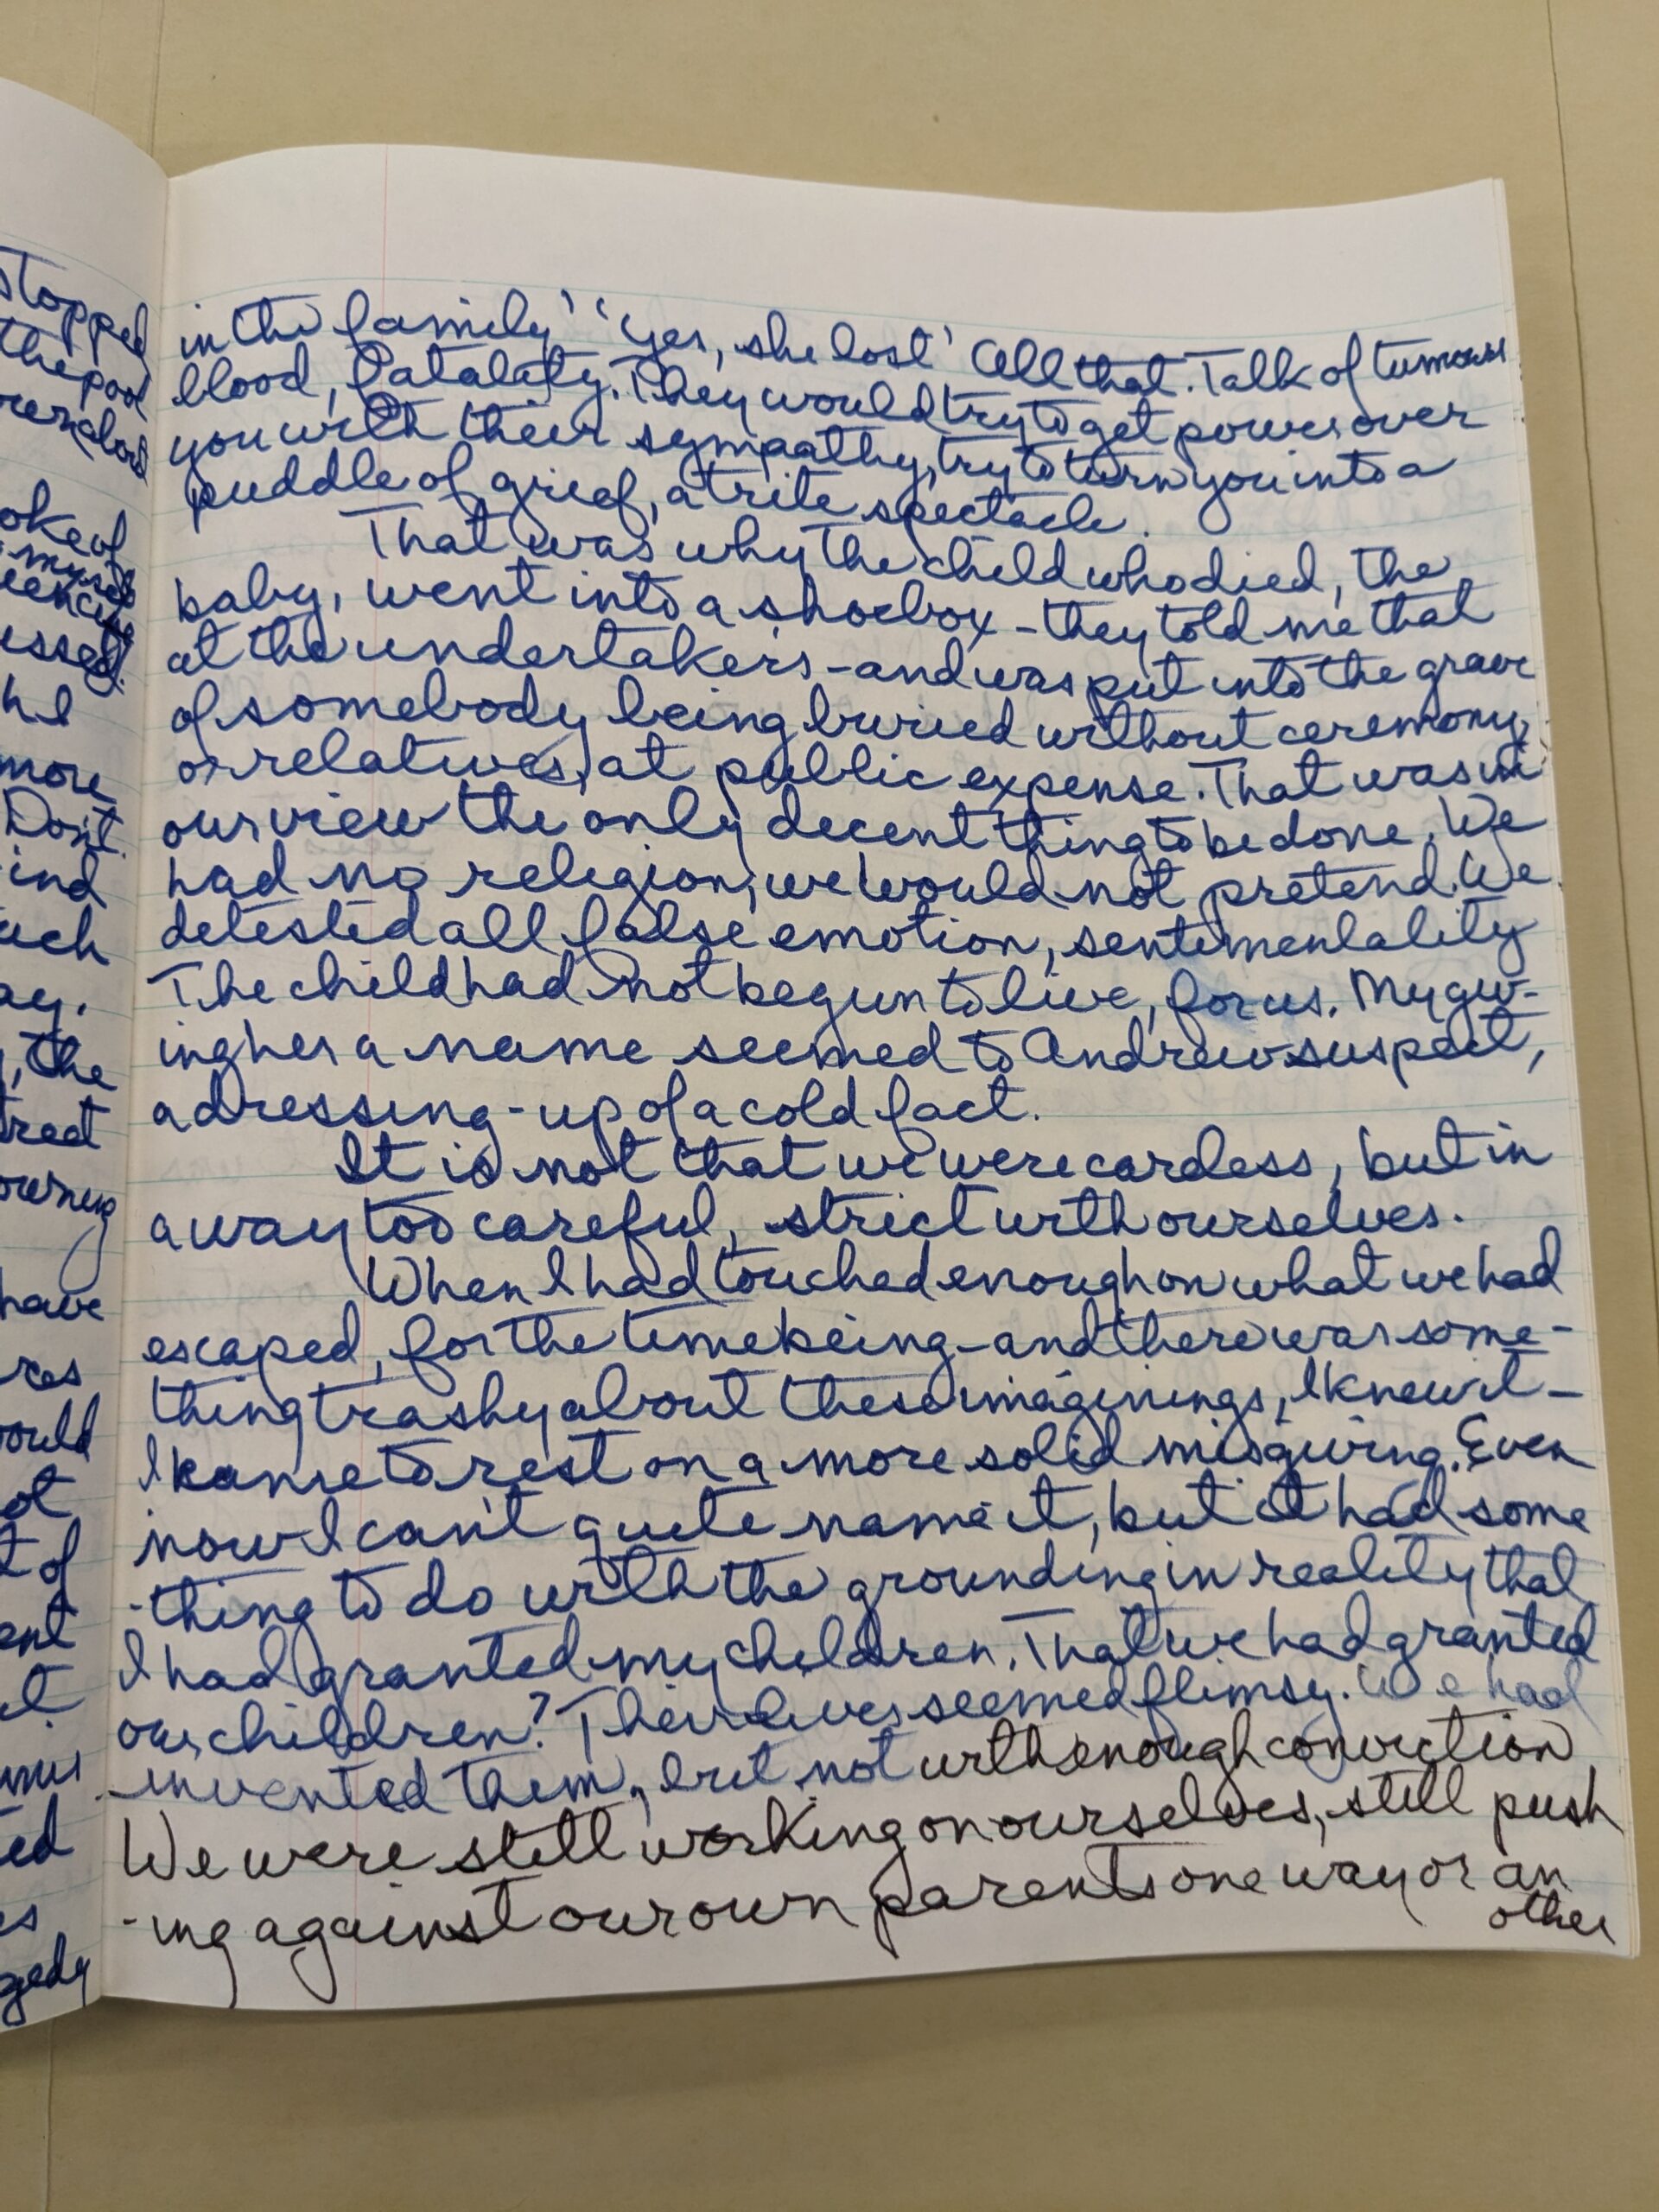 stopped
the pool
oke of
essed!
he I
more
Don't
ind
ach
ay.
, the
treet
have
res
ould
ot
t of
ent
ted
es
gedy
in the family' 'yes, she lost' All that. Talk of tumours
blood, fatality. They would try to get power over
you with their sympathy, try to turn you into a
puddle of grief, a trite spectacle.
That was why the child who died, the
baby, went into a shoebox - they told me that
at the undertakers - and was put into the grave
of somebody being buried without ceremony,
or relatives, at public expense. That was in
our view the only decent thing to be done. We
had no religion, we would not pretend. We
detested all false emotion, sentimentality
The child had not begun to live, for us. My giv-
ing her a name seemed to Andrew suspect,
a dressing-up of a cold fact.
It is not that we were careless, but in
a way too careful, strict with ourselves.
When I had touched enough on what we had
escaped, for the time being - and there was some-
thing trashy about these imaginings, I knew it -
I came to rest on a more solid misgiving. Even
now I can't quite name it, but it had some
-thing to do with the grounding in reality that
I had granted my children. That we had granted
our children? Their lives seemed flimsy. We had
invented them, but not with enough conviction
We were still working on ourselves, still push
-ing against our own parents one way or an
other